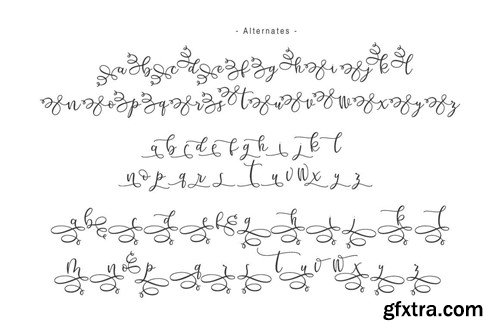 - Alternates -
a b c d e f g h i j k l
m n o p q r s t u v w x y z
a b c d e f g h i j k l
n o p q r s t u v w x y z
a b c d e f g h i j k l
m n o p q r s t u v w x y z
gfxtra.com